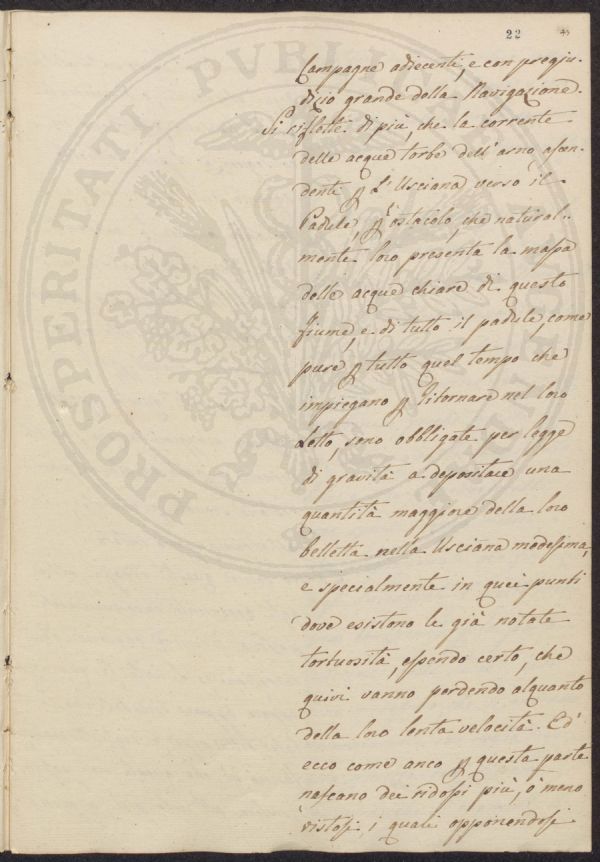 22
Campagne adiecenti, e con pregiu-
dizio grande della Navigazione.
Si riflette di più, che la corrente
delle acque torbe dell'arno ascen-
denti ꝑ L'Usciana verso il
Padule, ꝑ l'ostacolo, che natural-
mente loro presenta la massa
delle acque chiare di questo
fiume, e di tutto il padule, come
pure ꝑ tutto quel tempo che
impiegano ꝑ ritornare nel loro
Letto, sono obbligate per legge
di gravità a depositare una
quantità maggiore della loro
belletta nella Usciana medesima,
e specialmente in quei punti
dove esistono le già notate
tortuosità, essendo certo, che
quivi vanno perdendo alquanto
della loro lenta velocità. Ed'
ecco come anco ꝑ questa parte
nascano dei ridossi più, ò meno
vistosi, i quali opponendosi
PROSPERITATI PUBLI